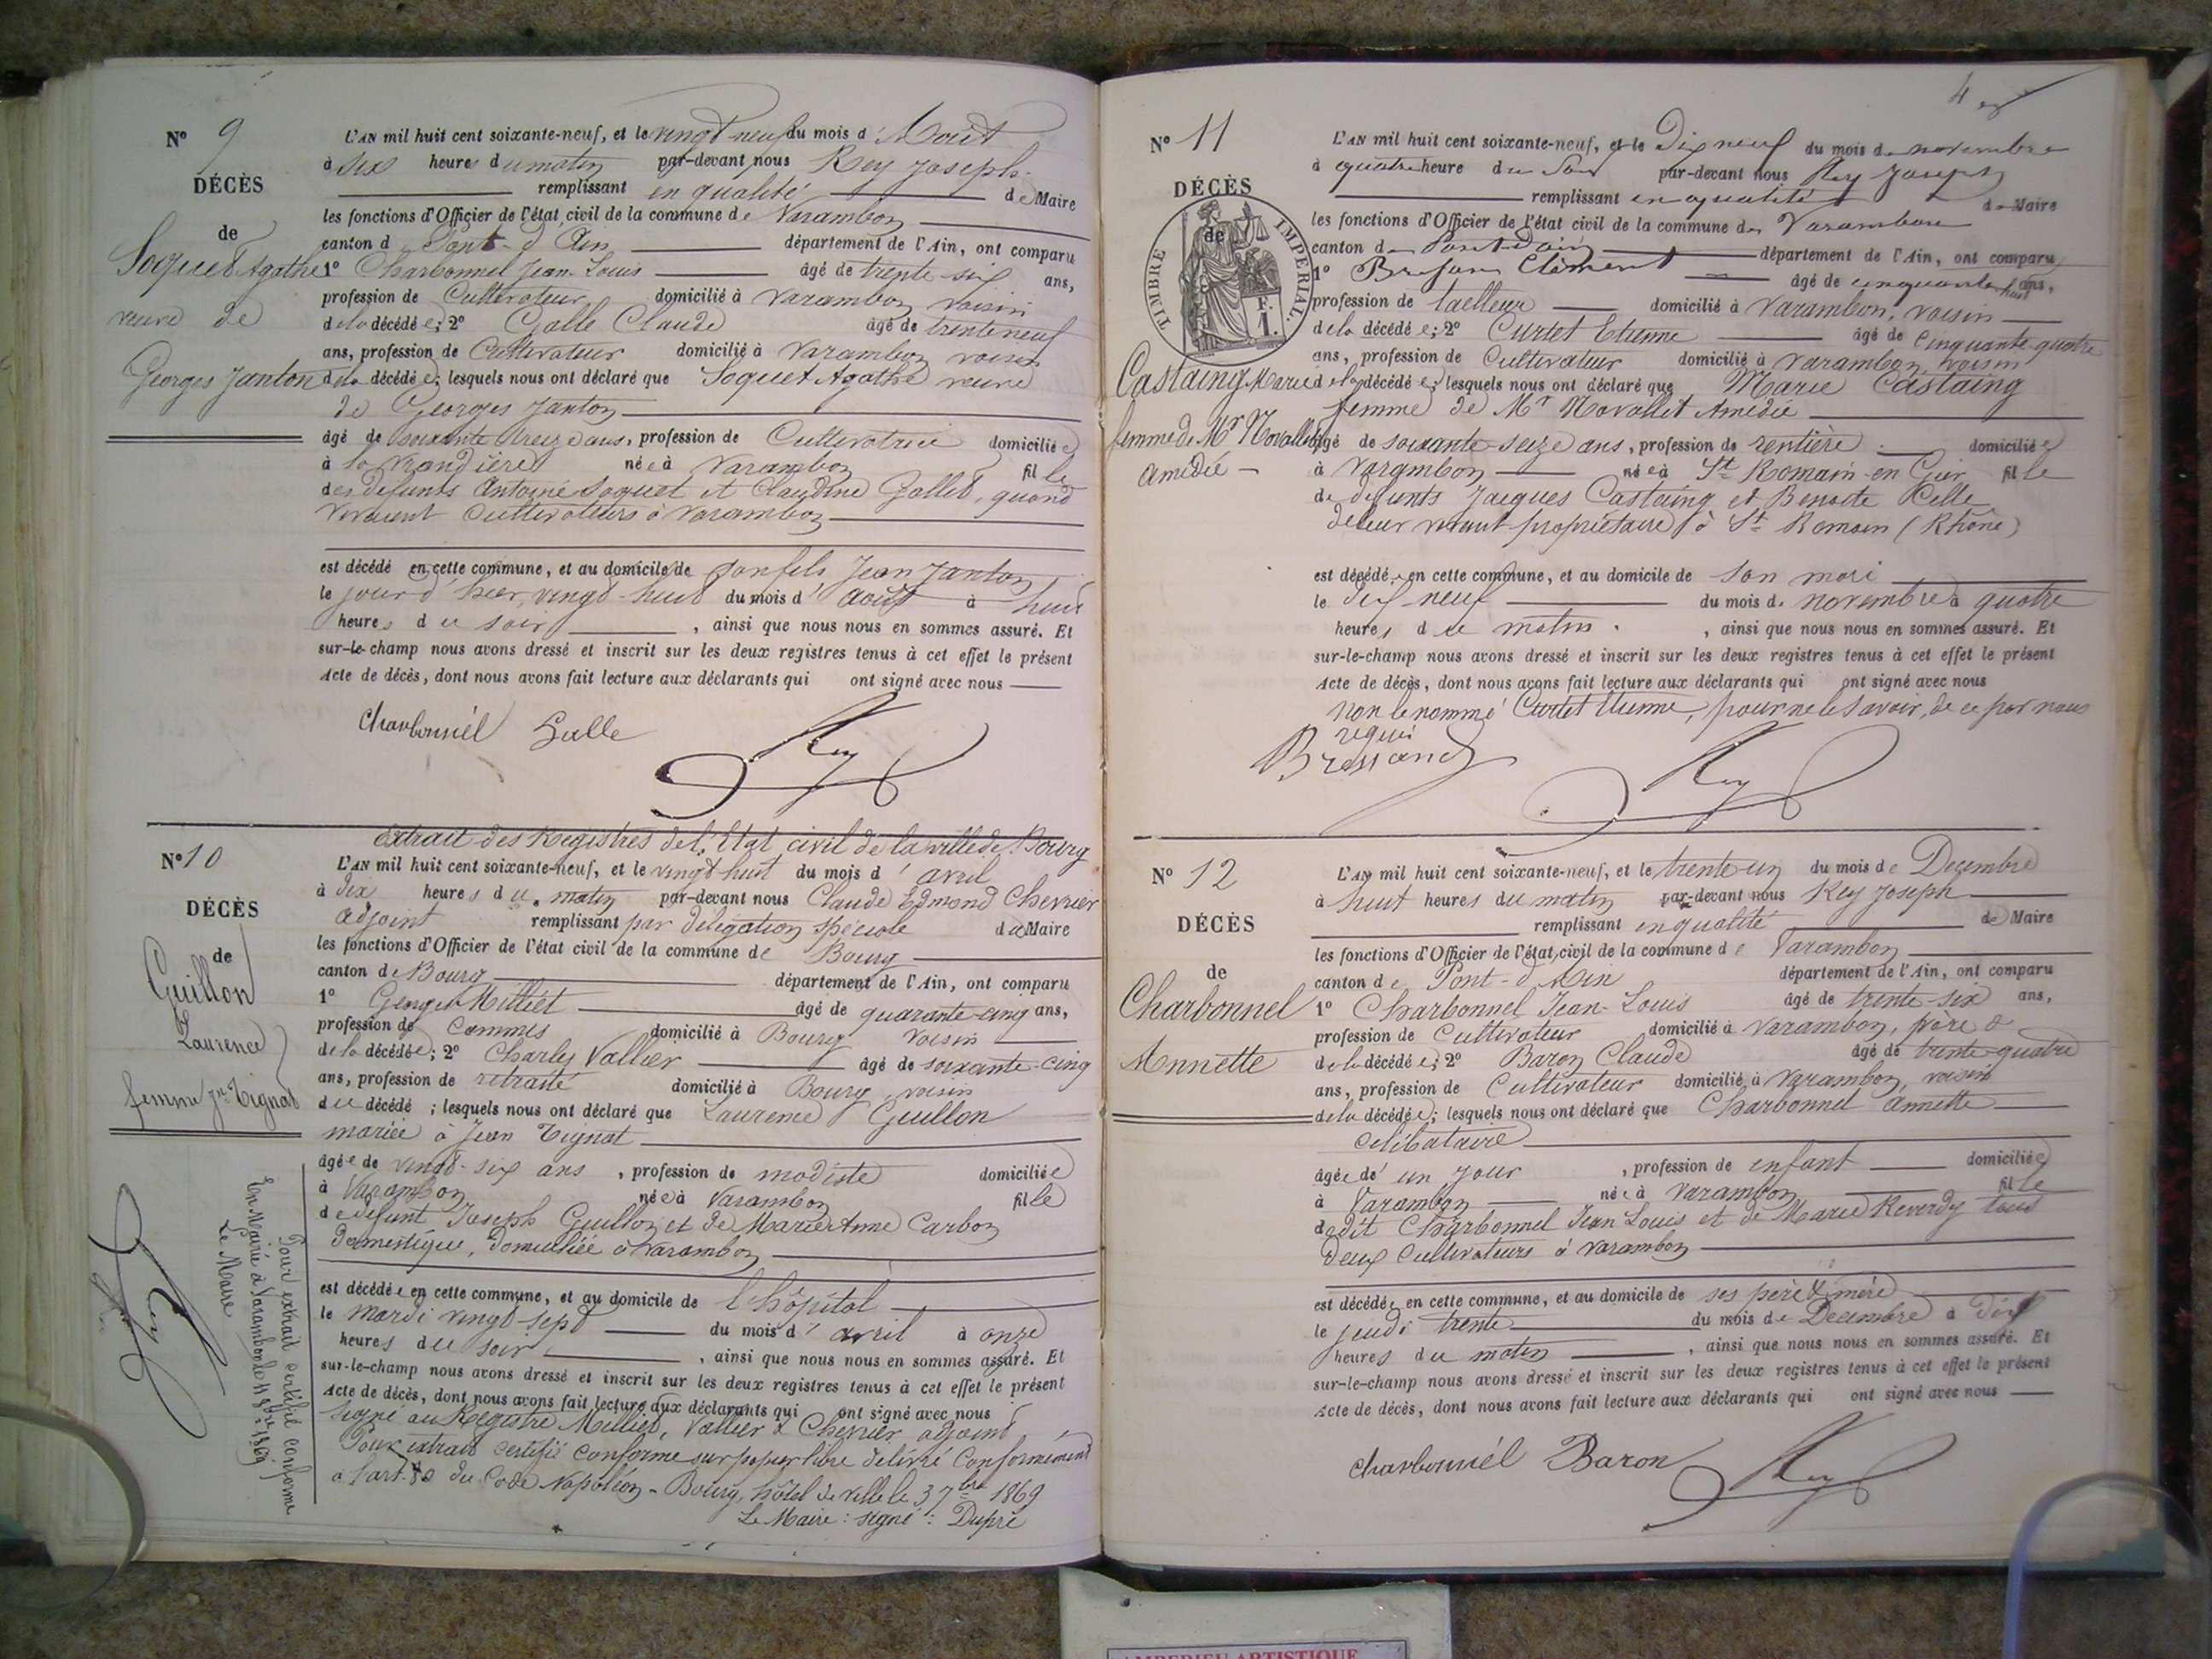 N° 9
DÉCÈS
de
Soquet Agathe
veuve de
Georges Janton
L'AN mil huit cent soixante-neuf, et le vingt neuf du mois d'Aout
à six heures du matin par-devant nous Rey Joseph
remplissant en qualité de Maire
les fonctions d'Officier de l'état civil de la commune de Varambon
canton d Pont-d'Ain département de l'Ain, ont comparu
1° Charbonnel Jean-Louis âgé de trente-six ans,
profession de Cultivateur domicilié à Varambon voisin
de la décédée; 2° Galle Claude âgé de trente neuf
ans, profession de Cultivateur domicilié à Varambon voisin
de la décédée; lesquels nous ont déclaré que Soquet Agathe veuve
de Georges Janton
âgé de soixante treize ans, profession de Cultivatrice domiciliée
à la née à Varambon fille
des défunts Antoine Soquet et Claudine Gallet, quand
vivaient Cultivateurs à Varambon
est décédé en cette commune, et au domicile de son fils Jean Janton
le jour d'hier, vingt-huit du mois d'août à huit
heures du soir, ainsi que nous nous en sommes assuré. Et
sur-le-champ nous avons dressé et inscrit sur les deux registres tenus à cet effet le présent
Acte de décès, dont nous avons fait lecture aux déclarants qui ont signé avec nous
Charbonnél Galle Rey
Extrait des Registres de l'Etat civil de la ville de Bourg
N° 10
DÉCÈS
de
Guillon
Laurence
femme Jn Tignat
L'AN mil huit cent soixante-neuf, et le vingt-huit du mois d'avril
à dix heures du matin par-devant nous Claude Edmond Chevrier
adjoint remplissant par délégation spéciale du Maire
les fonctions d'Officier de l'état civil de la commune de Bourg
canton de Bourg département de l'Ain, ont comparu
1° Georges Milliet âgé de quarante-cinq ans,
profession de Commis domicilié à Bourg voisin
de la décédée; 2° Charles Vallier âgé de soixante-cinq
ans, profession de retraité domicilié à Bourg, voisin
du décédé; lesquels nous ont déclaré que Laurence Guillon
mariée à Jean Tignat
âgée de vingt-six ans, profession de modiste domiciliée
à Varambon née à Varambon fille
de défunt Joseph Guillon et de Marie Anne Carbon
domestique, domiciliée à Varambon
est décédée en cette commune, et au domicile de l'hôpital
le mardi vingt sept du mois d'avril à onze
heures du soir, ainsi que nous nous en sommes assuré. Et
sur-le-champ nous avons dressé et inscrit sur les deux registres tenus à cet effet le présent
Acte de décès, dont nous avons fait lecture aux déclarants qui ont signé avec nous
signé au Registre Milliet, Vallier & Chevrier adjoint
Pour extrait certifié conforme sur papier libre délivré conformément
à l'art. 80 du Code Napoléon - Bourg, hôtel de ville le 3 7bre 1869
Le Maire: signé: Dupré
Pour extrait certifié conforme
En Mairie à Varambon le 1869
Le Maire
Rey
4
N° 11
DÉCÈS
de
TIMBRE IMPÉRIAL
F.
1.
Castaing Marie
femme de Mr Novallet
Amédée
L'AN mil huit cent soixante-neuf, et le Dix neuf du mois de novembre
à quatre heure du Soir par-devant nous Rey Joseph
remplissant en qualité de Maire
les fonctions d'Officier de l'état civil de la commune de Varambon
canton de Pont-d'ain département de l'Ain, ont comparu
1° Clément âgé de cinquante huit ans,
profession de tailleur domicilié à Varambon, voisin
de la décédée; 2° Curtet Etienne âgé de cinquante-quatre
ans, profession de Cultivateur domicilié à Varambon, voisin
de la décédée; lesquels nous ont déclaré que Marie Castaing
femme de Mr Novallet Amédée
âgé de soixante-seize ans, profession de rentière domiciliée
à Varambon née à St Romain-en-Gier fille
de défunts Jacques Castaing et Benoite Celle
de leur vivant propriétaire à St Romain (Rhône)
est décédée en cette commune, et au domicile de son mari
le dix neuf du mois de novembre à quatre
heures du matin, ainsi que nous nous en sommes assuré. Et
sur-le-champ nous avons dressé et inscrit sur les deux registres tenus à cet effet le présent
Acte de décès, dont nous avons fait lecture aux déclarants qui ont signé avec nous
non le nommé Curtet Etienne, pour ne le savoir, de ce par nous
requi
Bressand Rey
N° 12
DÉCÈS
de
Charbonnel
Annette
L'AN mil huit cent soixante-neuf, et le trente-un du mois de Décembre
à huit heures du matin par-devant nous Rey Joseph
remplissant en qualité de Maire
les fonctions d'Officier de l'état civil de la commune de Varambon
canton de Pont-d'Ain département de l'Ain, ont comparu
1° Charbonnel Jean-Louis âgé de trente-six ans,
profession de Cultivateur domicilié à Varambon, père
de la décédée; 2° Baron Claude âgé de trente-quatre
ans, profession de Cultivateur domicilié à Varambon, voisin
de la décédée; lesquels nous ont déclaré que Charbonnel Annette
célibataire
âgée de un jour, profession de enfant domiciliée
à Varambon née à Varambon fille
dudit Charbonnel Jean Louis et de Marie Reverdy tous
deux Cultivateurs à Varambon
est décédée en cette commune, et au domicile de ses père & mère
le jeudi trente du mois de Décembre à dix
heures du matin, ainsi que nous nous en sommes assuré. Et
sur-le-champ nous avons dressé et inscrit sur les deux registres tenus à cet effet le présent
Acte de décès, dont nous avons fait lecture aux déclarants qui ont signé avec nous
Charbonnél Baron Rey